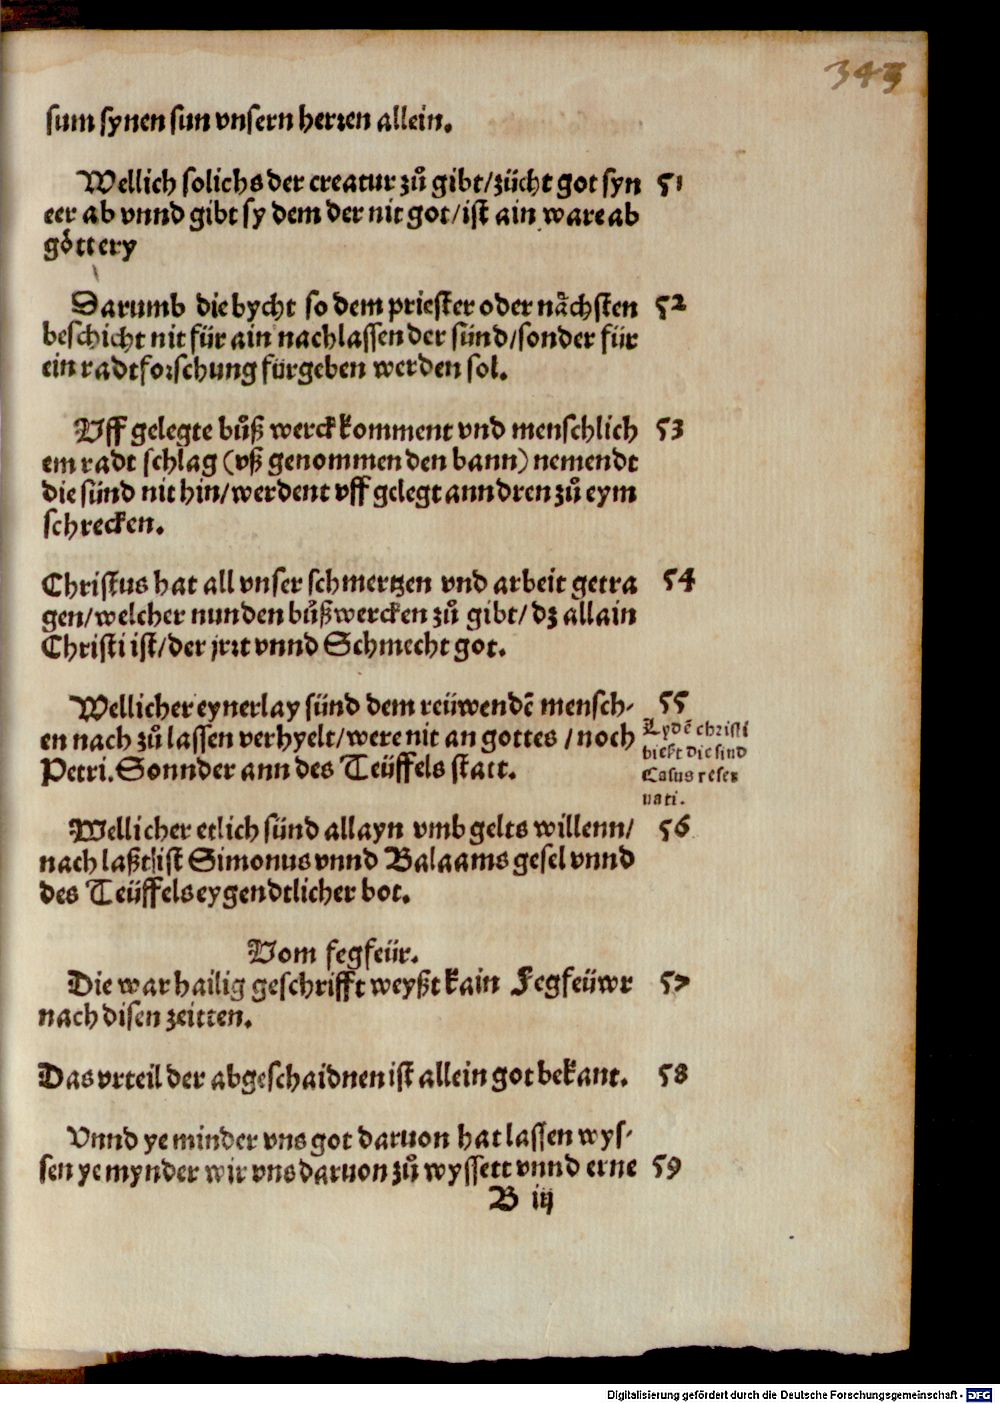 343
sum synen sun vnsern herren allein.
Wellich solichs der creatur zů gibt/zücht got syn 51
eer ab vnnd gibt sy dem der nit got/ist ain ware ab
gǒttery
Darumb die bycht so dem priester oder nåchsten 52
beschicht nit für ain nachlassen der sünd/sonder für
ein radtforschung fürgeben werden sol.
Vff gelegte bůß werck komment vnd menschlich 53
em radt schlag (vß genommen den bann) nemendt
die sünd nit hin/werdent vff gelegt anndren zů eym
schrecken.
Christus hat all vnser schmertzen vnd arbeit getra 54
gen/welcher nun den bůßwercken zů gibt/dz allain
Christi ist/der jrrt vnnd Schmecht got.
Wellicher eynerlay sünd dem reüwendē mensch- 55
en nach zů lassen verhyelt/were nit an gottes/noch
Petri. Sonnder ann des Teüffels statt.
Lydē christi
biekt die sind
Casus reser
uati.
Wellicher etlich sünd allayn vmb gelts willenn/ 56
nach laßt/ist Simonus vnnd Balaams gesel vnnd
des Teüffels eygendtlicher bot.
Vom fegfeür.
Die war hailig geschrifft weyßt kain Fegfeüwr 57
nach disen zeitten.
Das vrteil der abgeschaidnen ist allein got bekant. 58
Vnnd ye minder vns got daruon hat lassen wys-
sen ye mynder wir vns daruon zů wyssett vnnd erne 59
B iij
Digitalisierung gefördert durch die Deutsche Forschungsgemeinschaft - DFG